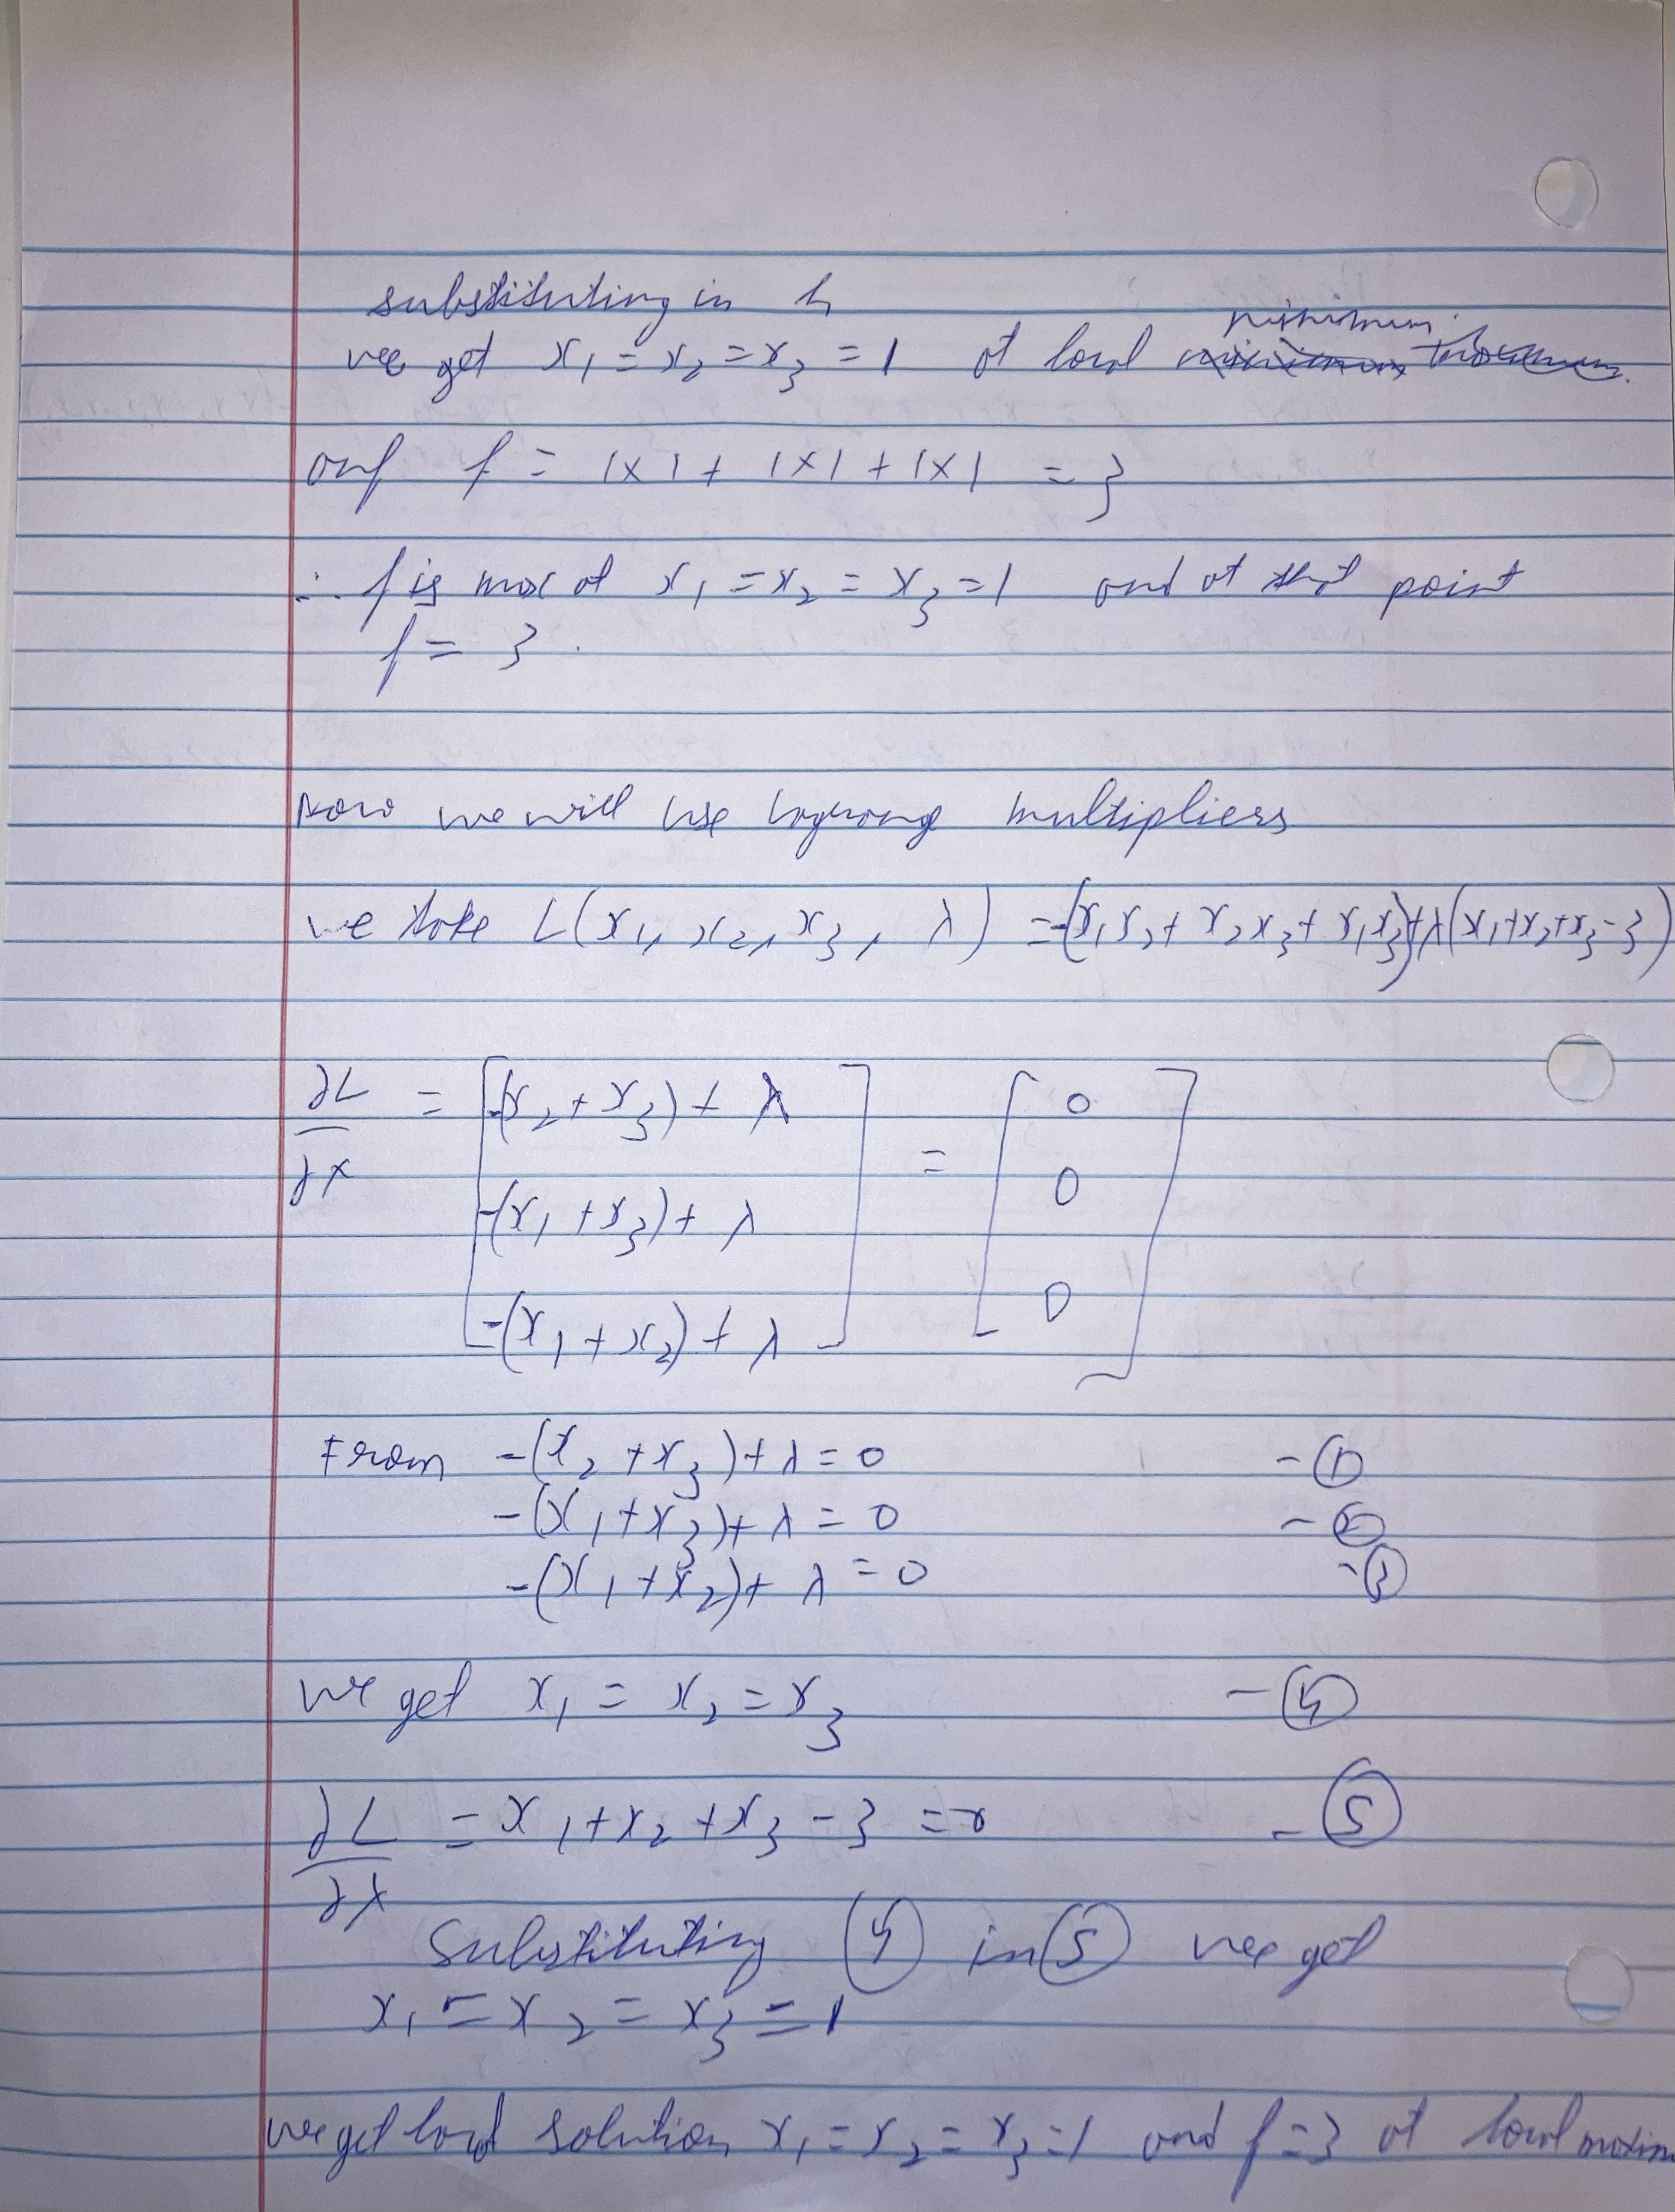 substituting in h
minimum.
we get x₁ = x₂ = x₃ = 1 at local
and f = 1×1 + 1×1 + 1×1 = 3
∴ f is max at x₁ = x₂ = x₃ = 1 and at that point
f = 3.
Now we will use lagrange multipliers
we take L(x₁, x₂, x₃, λ) = -(x₁x₂ + x₂x₃ + x₁x₃) + λ(x₁+x₂+x₃-3)
∂L/∂x = [-(x₂+x₃) + λ] = [0]
[-(x₁+x₃) + λ] [0]
[-(x₁+x₂) + λ] [0]
From -(x₂+x₃)+λ = 0 -①
-(x₁+x₃)+λ = 0 -②
-(x₁+x₂)+λ = 0 -③
we get x₁ = x₂ = x₃ -④
∂L/∂λ = x₁+x₂+x₃-3 = 0 -⑤
Substituting ④ in ⑤ we get
x₁ = x₂ = x₃ = 1
we get local solution x₁ = x₂ = x₃ = 1 and f = 3 at local maxim